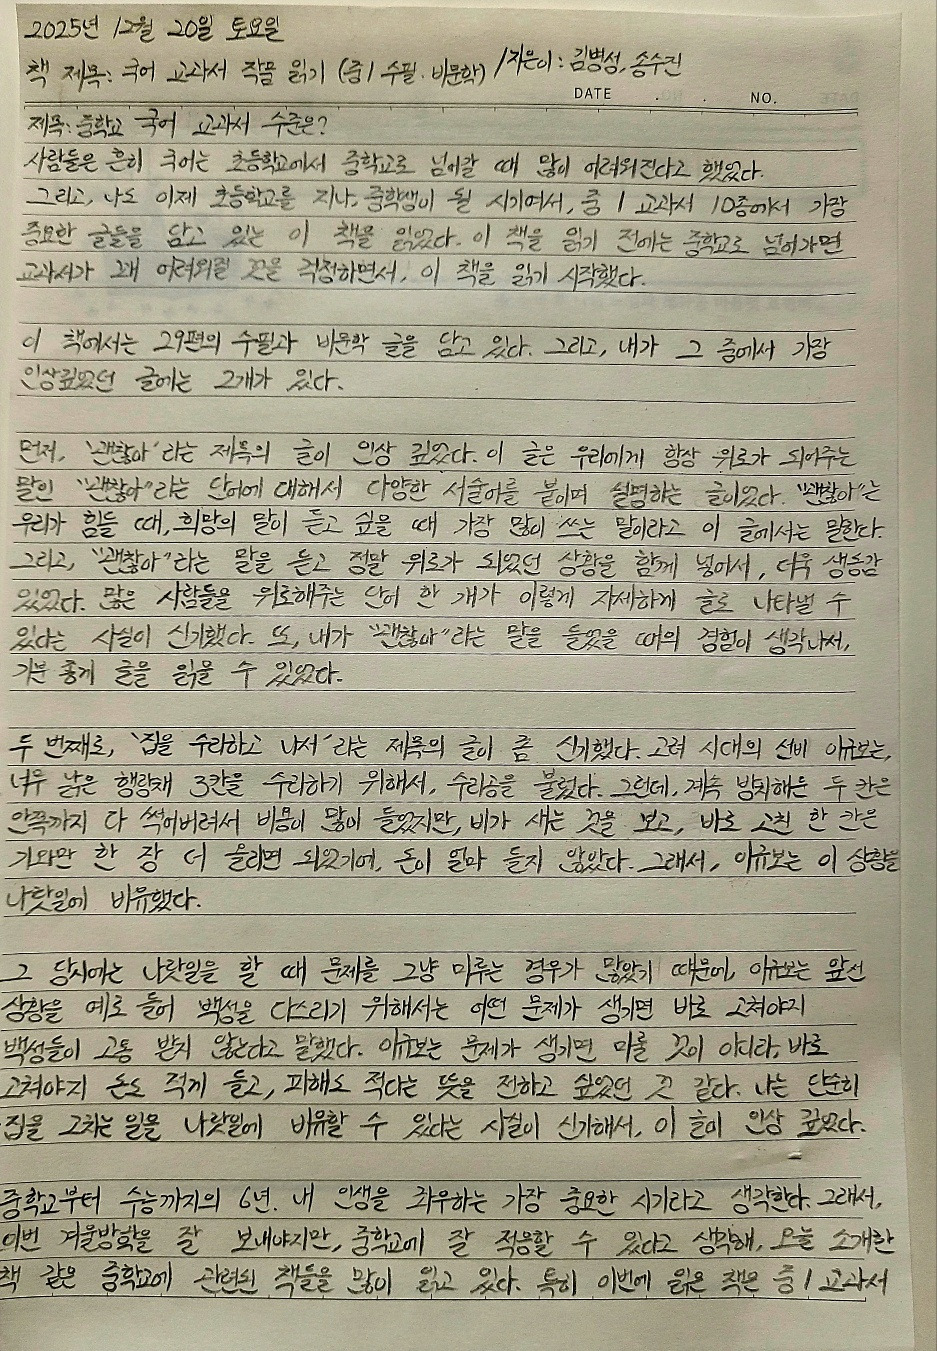 2025년 12월 20일 토요일
책 제목: 국어 교과서 작품 읽기 (중1 수필·비문학) / 지은이: 김병성, 송수진
DATE . . NO.
제목: 중학교 국어 교과서 수준은?
사람들은 흔히 국어는 초등학교에서 중학교로 넘어갈 때 많이 어려워진다고 했었다.
그리고, 나도 이제 초등학교를 지나, 중학생이 될 시기여서, 중 1 교과서 10종에서 가장
중요한 글들을 담고 있는 이 책을 읽었다. 이 책을 읽기 전에는 중학교로 넘어가면
교과서가 꽤 어려워질 것을 걱정하면서, 이 책을 읽기 시작했다.
이 책에서는 29편의 수필과 비문학 글을 담고 있다. 그리고, 내가 그 중에서 가장
인상깊었던 글에는 2개가 있다.
먼저, '괜찮아'라는 제목의 글이 인상 깊었다. 이 글은 우리에게 항상 위로가 되어주는
말인 "괜찮아"라는 단어에 대해서 다양한 서술어를 붙이며 설명하는 글이었다. "괜찮아"는
우리가 힘들 때, 희망의 말이 듣고 싶을 때 가장 많이 쓰는 말이라고 이 글에서는 말한다.
그리고, "괜찮아"라는 말을 듣고 정말 위로가 되었던 상황을 함께 넣어서, 더욱 생동감
있었다. 많은 사람들을 위로해주는 단어 한 개가 이렇게 자세하게 글로 나타낼 수
있다는 사실이 신기했다. 또, 내가 "괜찮아"라는 말을 들었을 때의 경험이 생각나서,
기분 좋게 글을 읽을 수 있었다.
두 번째로, '집을 수리하고 나서'라는 제목의 글이 좀 신기했다. 고려 시대의 선비 이규보는,
너무 낡은 행랑채 3칸을 수리하기 위해서, 수리공을 불렀다. 그런데, 계속 방치해온 두 칸은
안쪽까지 다 썩어버려서 비용이 많이 들었지만, 비가 새는 것을 보고, 바로 고친 한 칸은
기와만 한 장 더 올리면 되었기에, 돈이 얼마 들지 않았다. 그래서, 이규보는 이 상황을
나랏일에 비유했다.
그 당시에는 나랏일을 할 때 문제를 그냥 미루는 경우가 많았기 때문에, 이규보는 앞선
상황을 예로 들어 백성을 다스리기 위해서는 어떤 문제가 생기면 바로 고쳐야지
백성들이 고통 받지 않는다고 말했다. 이규보는 문제가 생기면 미룰 것이 아니라, 바로
고쳐야지 돈도 적게 들고, 피해도 적다는 뜻을 전하고 싶었던 것 같다. 나는 단순히
집을 고치는 일을 나랏일에 비유할 수 있다는 사실이 신기해서, 이 글이 인상 깊었다.
중학교부터 수능까지의 6년. 내 인생을 좌우하는 가장 중요한 시기라고 생각한다. 그래서,
이번 겨울방학을 잘 보내야지만, 중학교에 잘 적응할 수 있다고 생각해, 오늘 소개한
책 같은 중학교에 관련된 책들을 많이 읽고 있다. 특히 이번에 읽은 책은 중 1 교과서